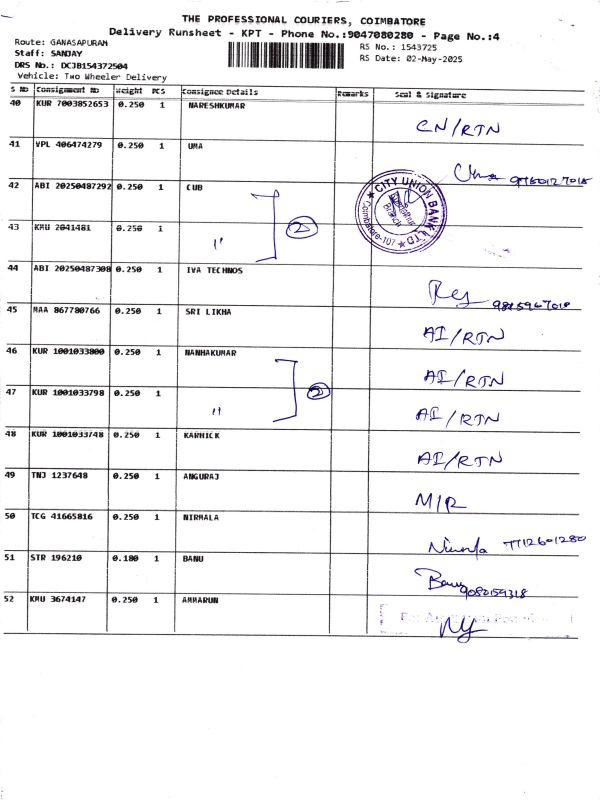 THE PROFESSIONAL COURIERS, COIMBATORE
Delivery Runsheet - KPT - Phone No.:9047080280 - Page No.:4
Route: GANASAPURAM
RS No.: 1543725
Staff: SANJAY
RS Date: 02-May-2025
DRS No.: DCJB154372504
Vehicle: Two Wheeler Delivery
S No Consignment No Weight PCS Consignee Details Remarks Seal & Signature
40 KUR 7003852653 0.250 1 NARESHKUMAR
CN/RTN
41 VPL 406474279 0.250 1 UMA
Uma
42 ABI 20250487292 0.250 1 CUB
CITY UNION BANK LTD.
Coimbatore-107
BRANCH
43 KMU 2041481 0.250 1 " 2
44 ABI 20250487308 0.250 1 IVA TECHNOS
45 MAA 867780766 0.250 1 SRI LIKHA
AI/RTN
46 KUR 1001033800 0.250 1 NANHAKUMAR
AI/RTN
47 KUR 1001033798 0.250 1 " 2
AI/RTN
48 KUR 1001033748 0.250 1 KARHICK
AI/RTN
49 TNJ 1237648 0.250 1 ANGURAJ
M/R
50 TCG 41665816 0.250 1 NIRMALA
7712601280
51 STR 196210 0.180 1 BANU
Banu 9080159318
52 KMU 3674147 0.250 1 AMMARUN